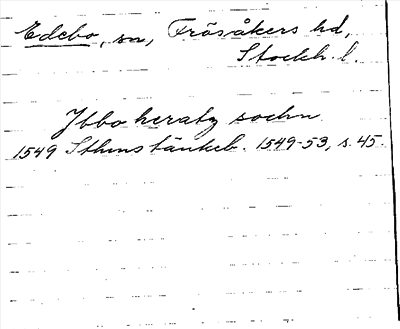 Edebo, sn, Frösåkers hd,
Stockh. l.
Ybbo heratz sochn
1549 Sthms tänkeb. 1549-53, s. 45.